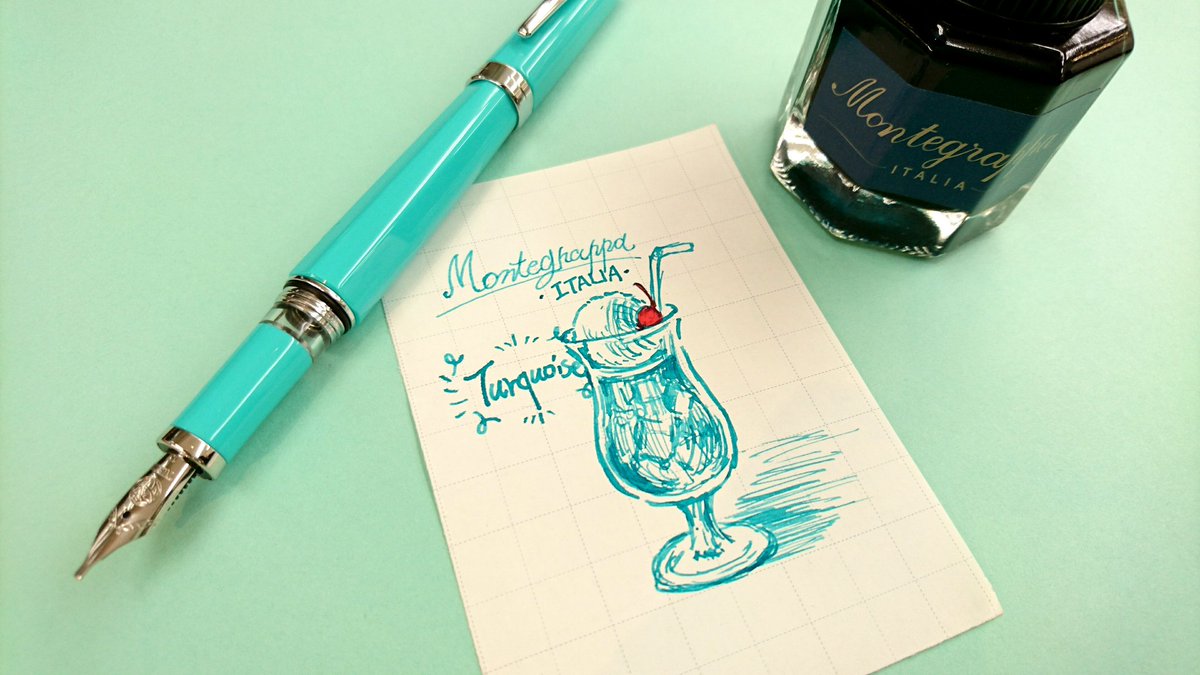 Montegrappa
ITALIA
Montegrappa
·ITALIA·
Turquoise